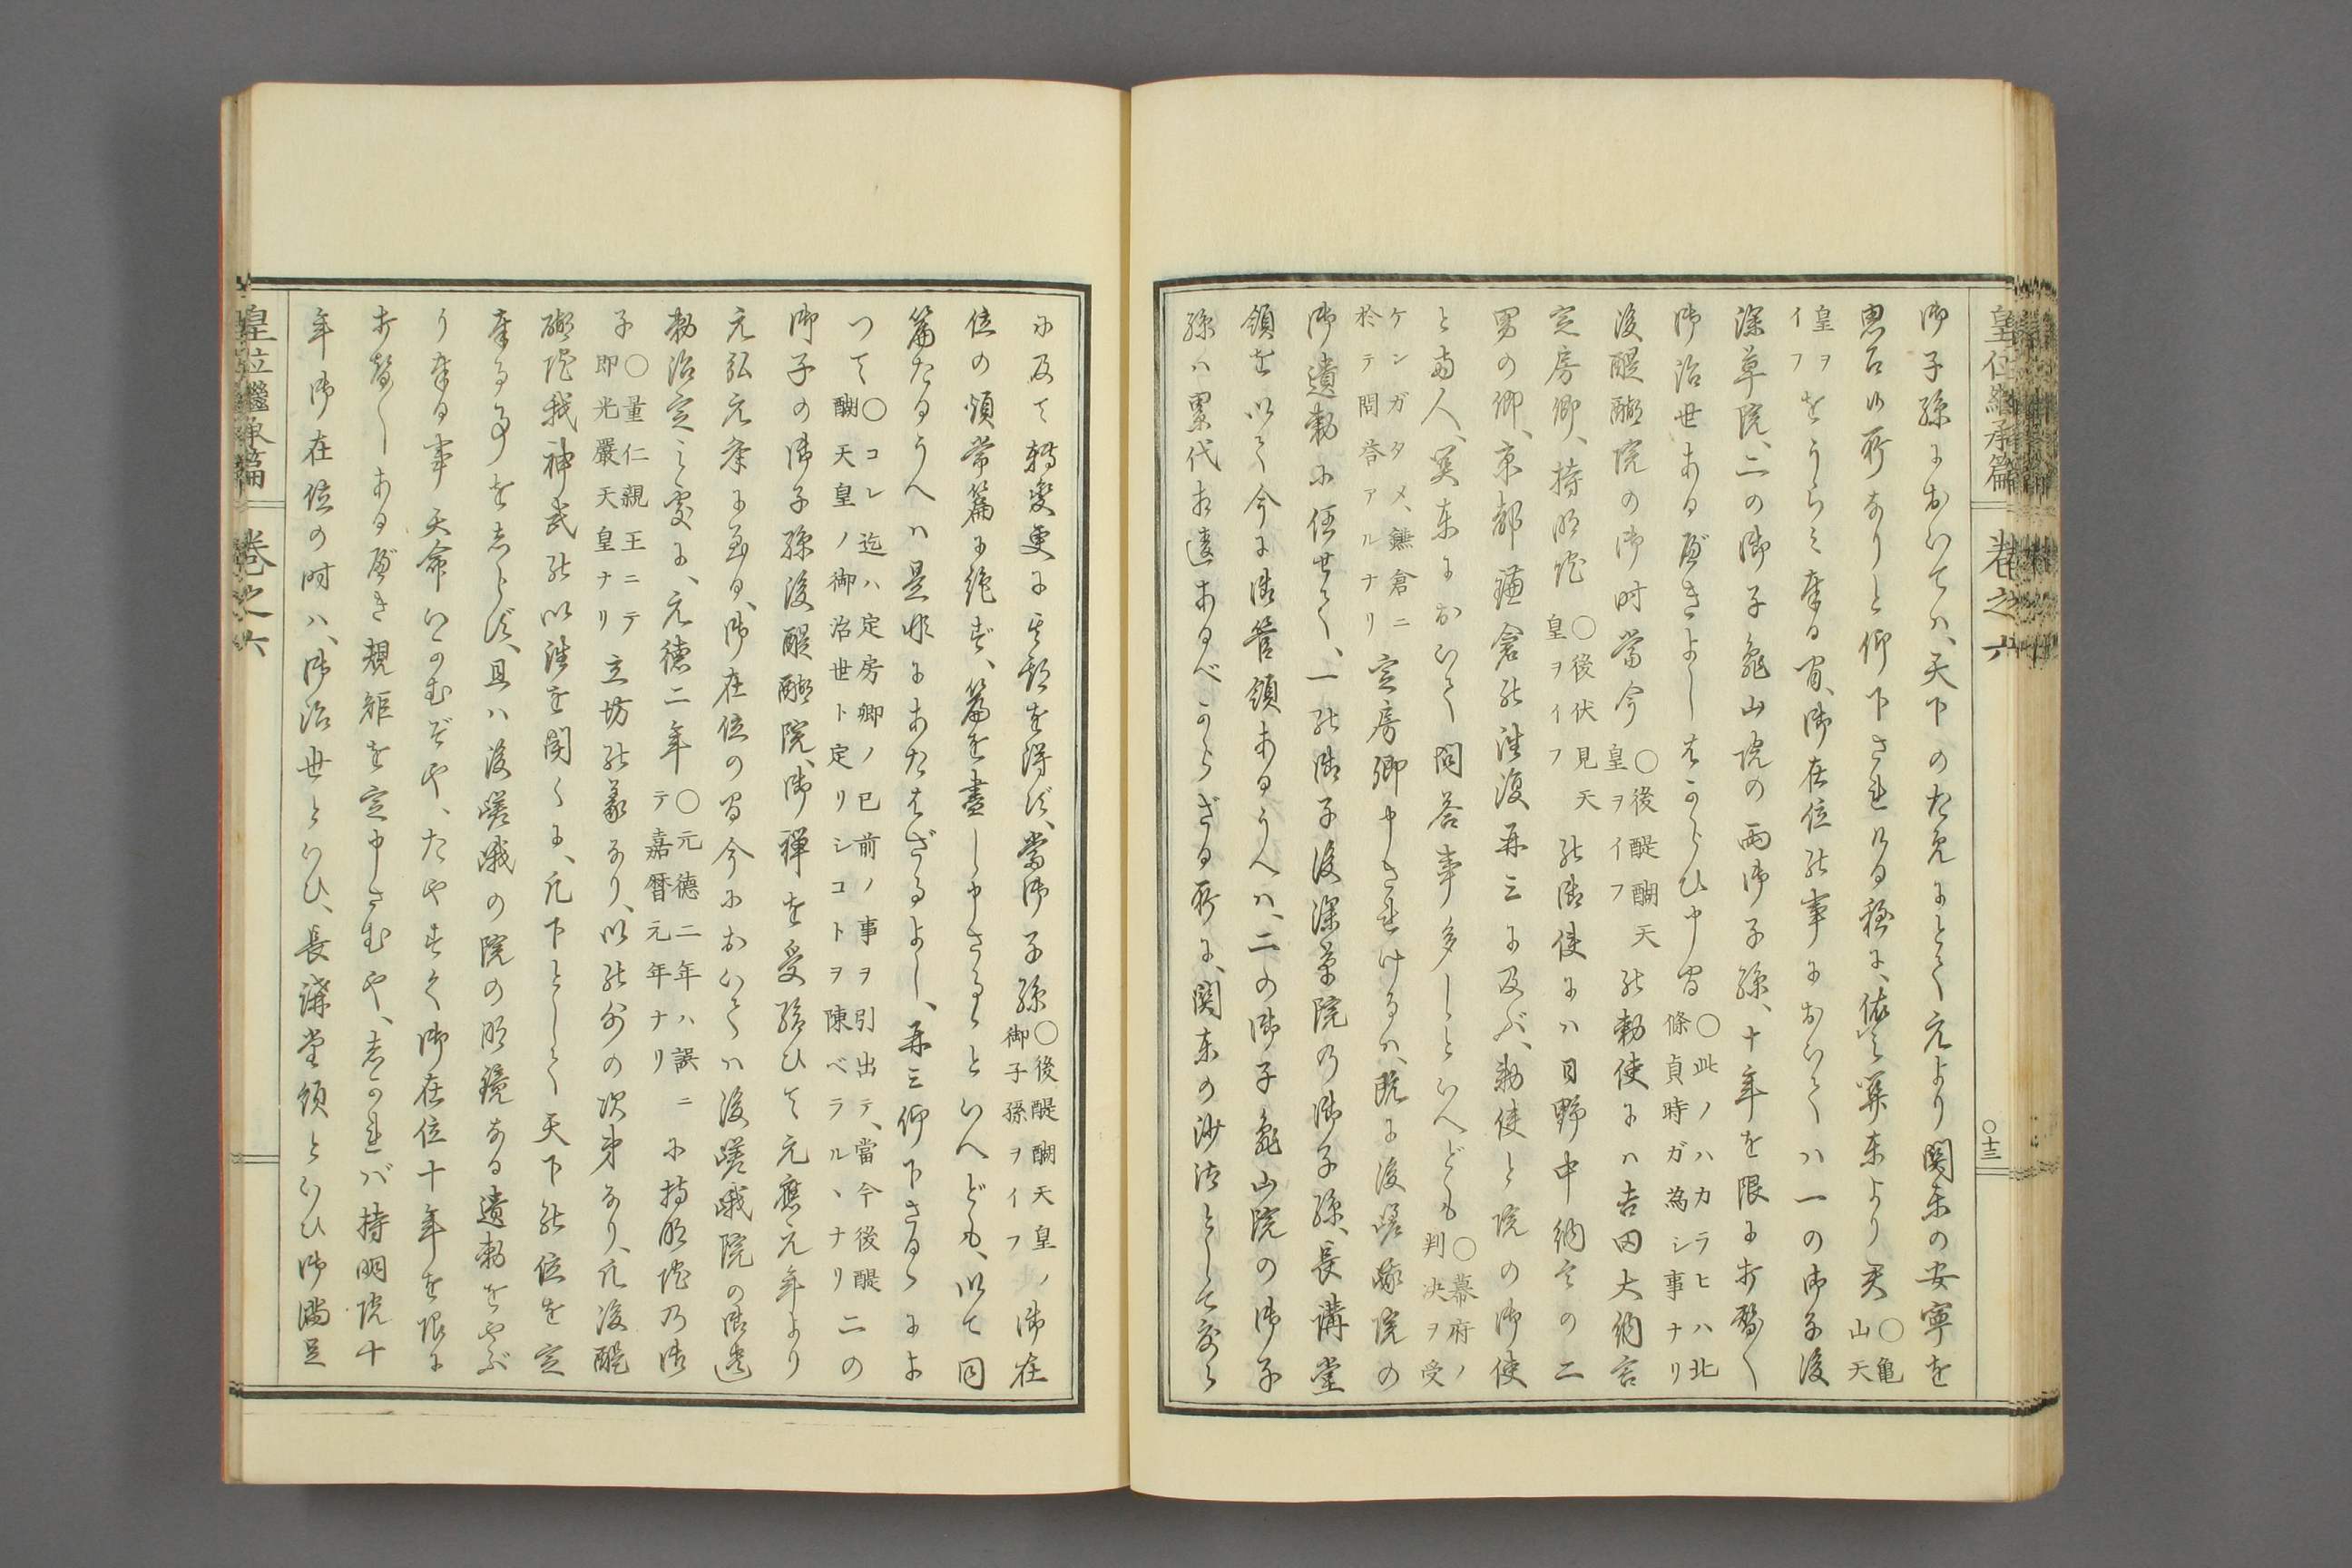 皇位繼承篇 卷之六 〇十三
御子孫においてハ、天下のためにとて元より関東の安寧を
思召所なりと仰下されける程に、依之関東より君〇亀山天
皇ヲイフをうらミ奉る間、御在位の事においてハ一の御子後
深草院、二の御子亀山院の両御子孫、十年を限に打替〱
御治世あるべきよしはからひ申間〇此ノハカラヒハ北條貞時ガ為シ事ナリ
後醍醐院の御時當今〇後醍醐天皇ヲイフの勅使にハ吉田大納言
定房卿、持明院〇後伏見天皇ヲイフの御使にハ日野中納言の二
男の卿、京都鎌倉の往復再三に及ぶ、勅使と院の御使
と両人、関東において問答事多しといへども〇幕府ノ判決ヲ受
ケンガタメ、鎌倉ニ於テ問答アルナリ定房卿申されけるハ、既に後嵯峨院の
御遺勅に任せて、一の御子後深草院の御子孫、長講堂
領を以て今に御管領あるうへハ、二の御子亀山院の御子
孫ハ累代相違あるべからざる所に、関東の沙汰として宛ら
に及て轉變更に其期を得ず、當御子孫〇後醍醐天皇ノ御子孫ヲイフ御在
位の煩常篇に絶ず、篇を盡し申さるゝといへども、以て同
篇たるうへハ是非にあたはざるよし、再三仰下さるゝによ
つて〇コレ迄ハ定房卿ノ已前ノ事ヲ引出テ、當今後醍醐天皇ノ御治世ト定リシコトヲ陳ベラルヽナリ二の
御子の御子孫後醍醐院、御禅を受給ひて元應元年より
元弘元年に至る、御在位の間今において後嵯峨院の御遺
勅治定之處に、元徳二年〇元德二年ハ誤ニテ嘉暦元年ナリに持明院の御
子〇量仁親王ニテ即光嚴天皇ナリ立坊の義あり、以の外の次第なり、凡後醍
醐院我神武の以往を聞くに、凡下として天下の位を定
奉る事をしらず、且ハ後嵯峨の院の明鏡なる遺勅をやぶ
り奉る事天命いかむぞや、たやすく御在位十年を限に
打替〱あるべき規矩を定申さむや、しかれバ持明院十
年御在位の時ハ、御治世といひ、長講堂領といひ御満足
皇位繼承篇 卷之六